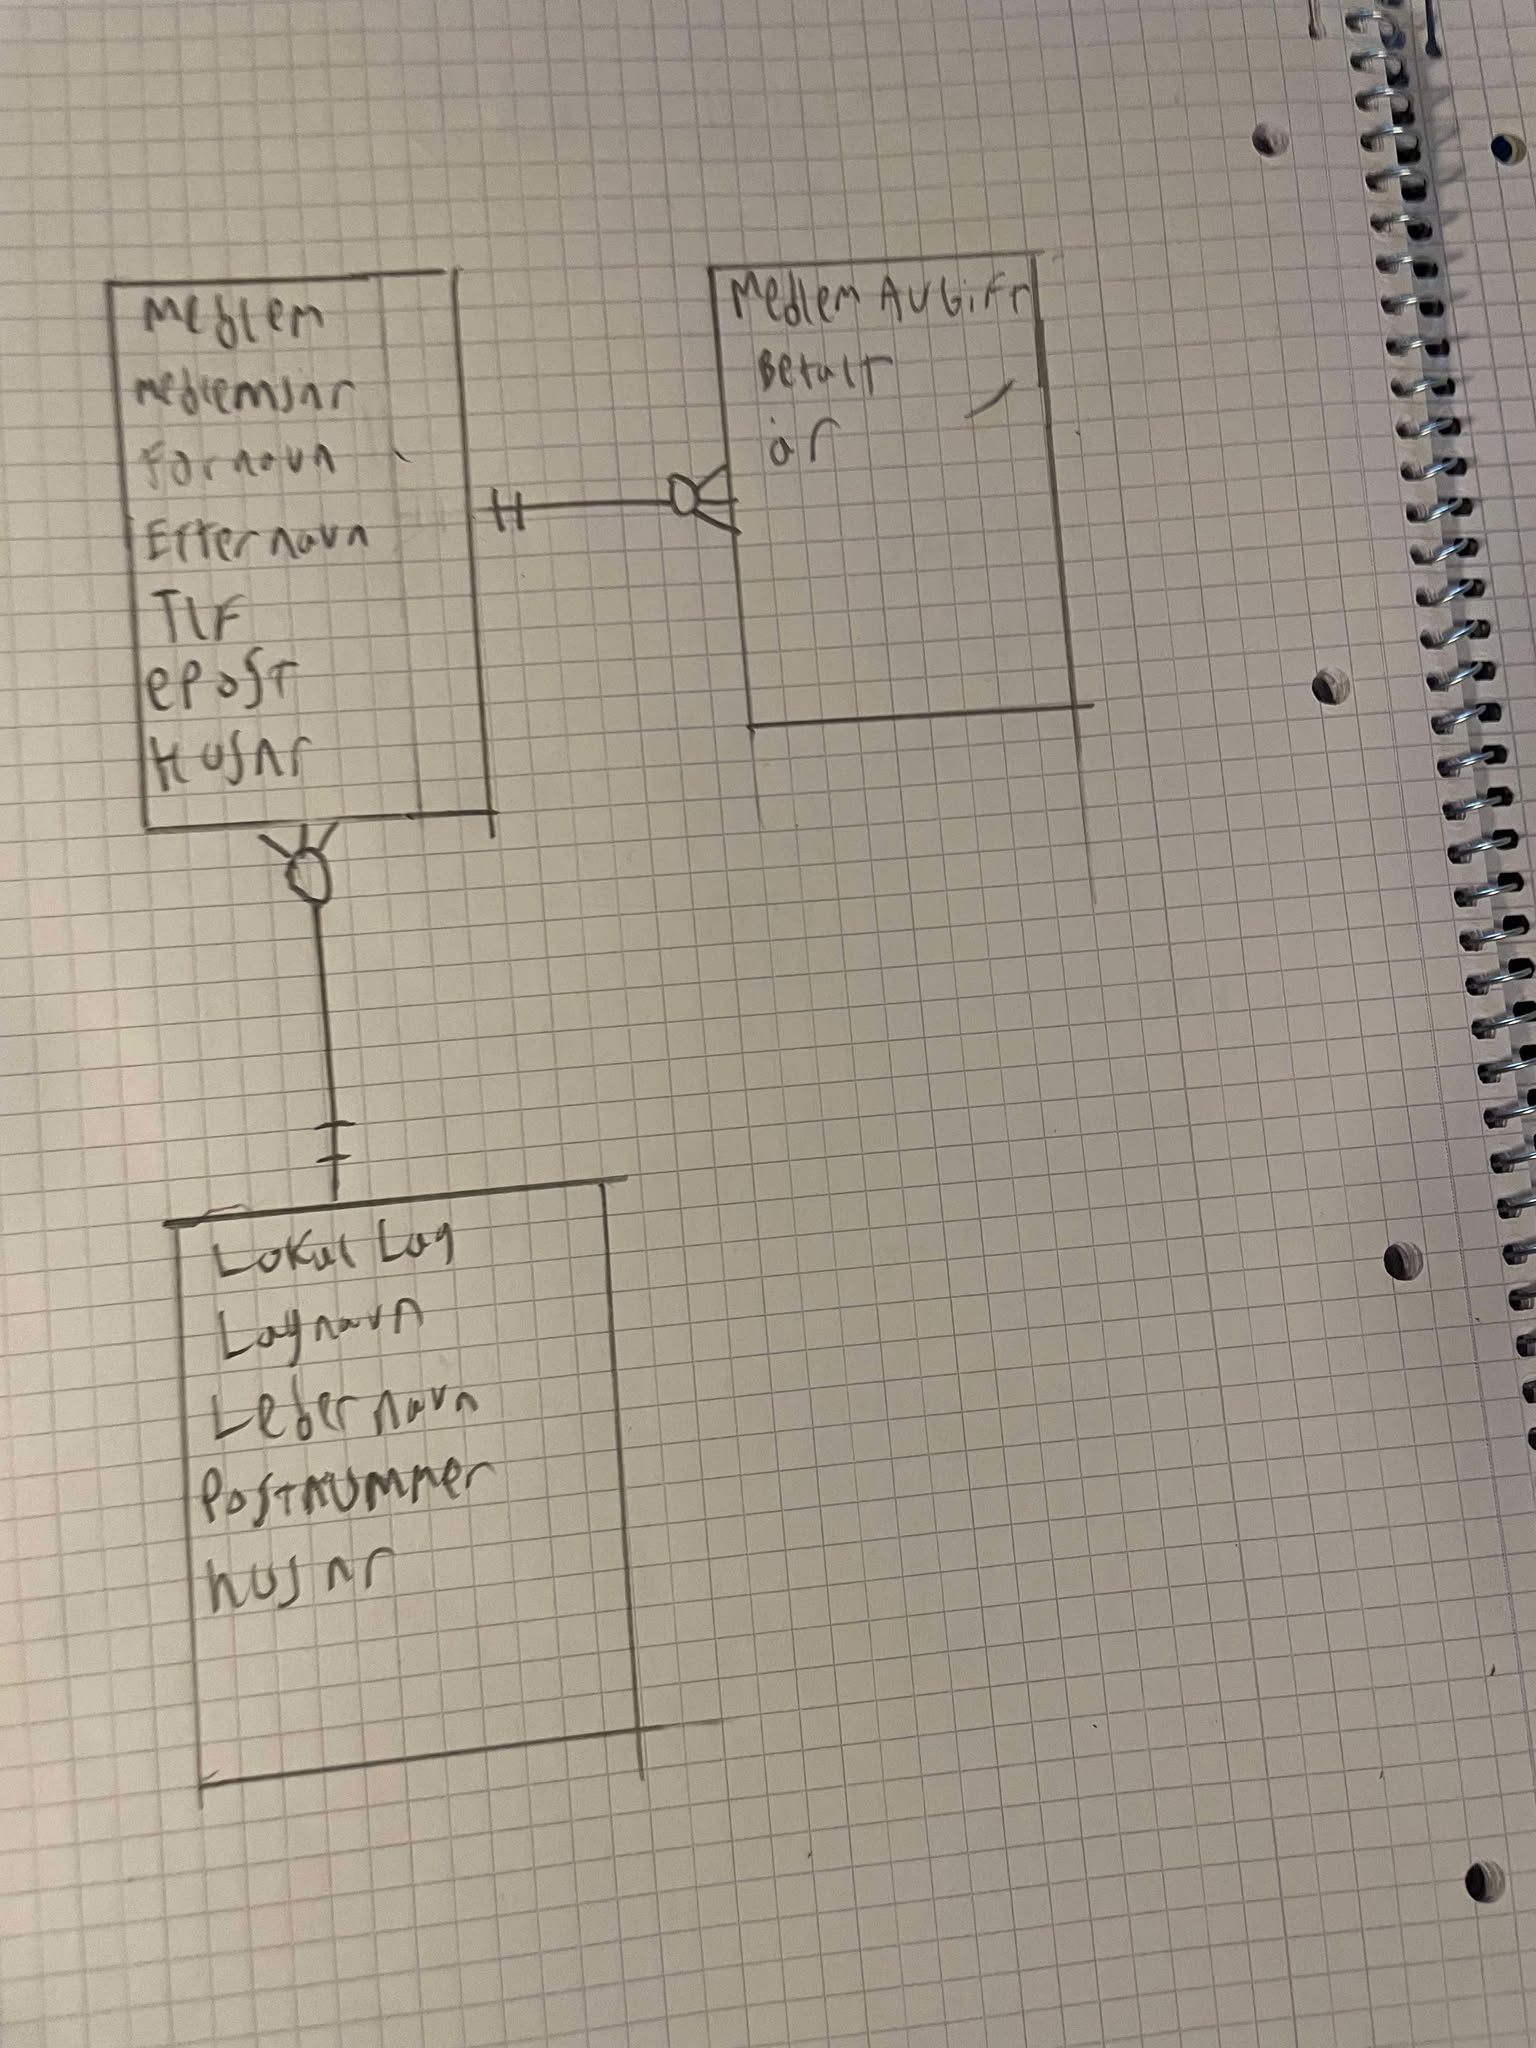 Medlem
Medlemsnr
Fornavn
Etternavn
TLF
epost
Husnr
Medlem AVGiFT
Betalt
år
Lokal Lag
Lagnavn
Leder navn
Postnummer
husnr